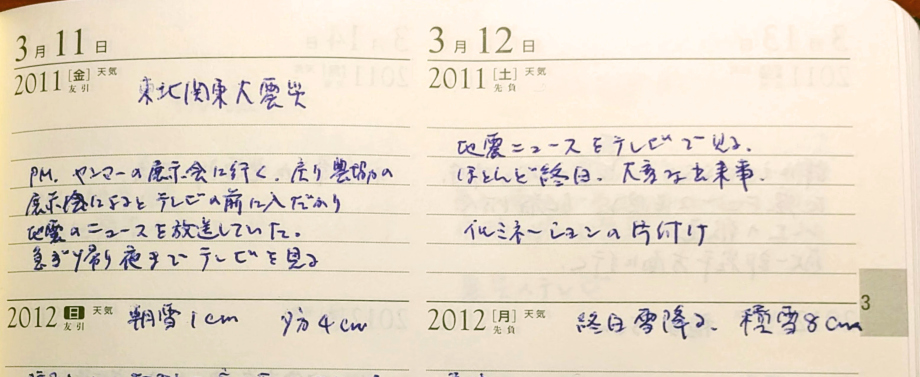 3月11日
2011 [金] 天気
友引
東北関東大震災
PM. ヤンマーの展示会に行く、戻り農協の
展示会によるとテレビの前に人だかり
地震のニュースを放送していた。
急ぎ帰り夜までテレビを見る
2012 日 天気
友引
朝雪1cm 夕方4cm
3月12日
2011 [土] 天気
先負
地震ニュースをテレビで見る、
ほとんど終日、大変な出来事
イルミネーションの片付け
2012 [月] 天気
先負
終日雪降る、積雪8cm
3